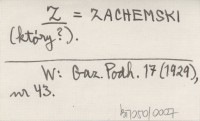 Z = ZACHEMSKI
(który?).
W: Gaz. Podh. 17 (1929),
nr 43.